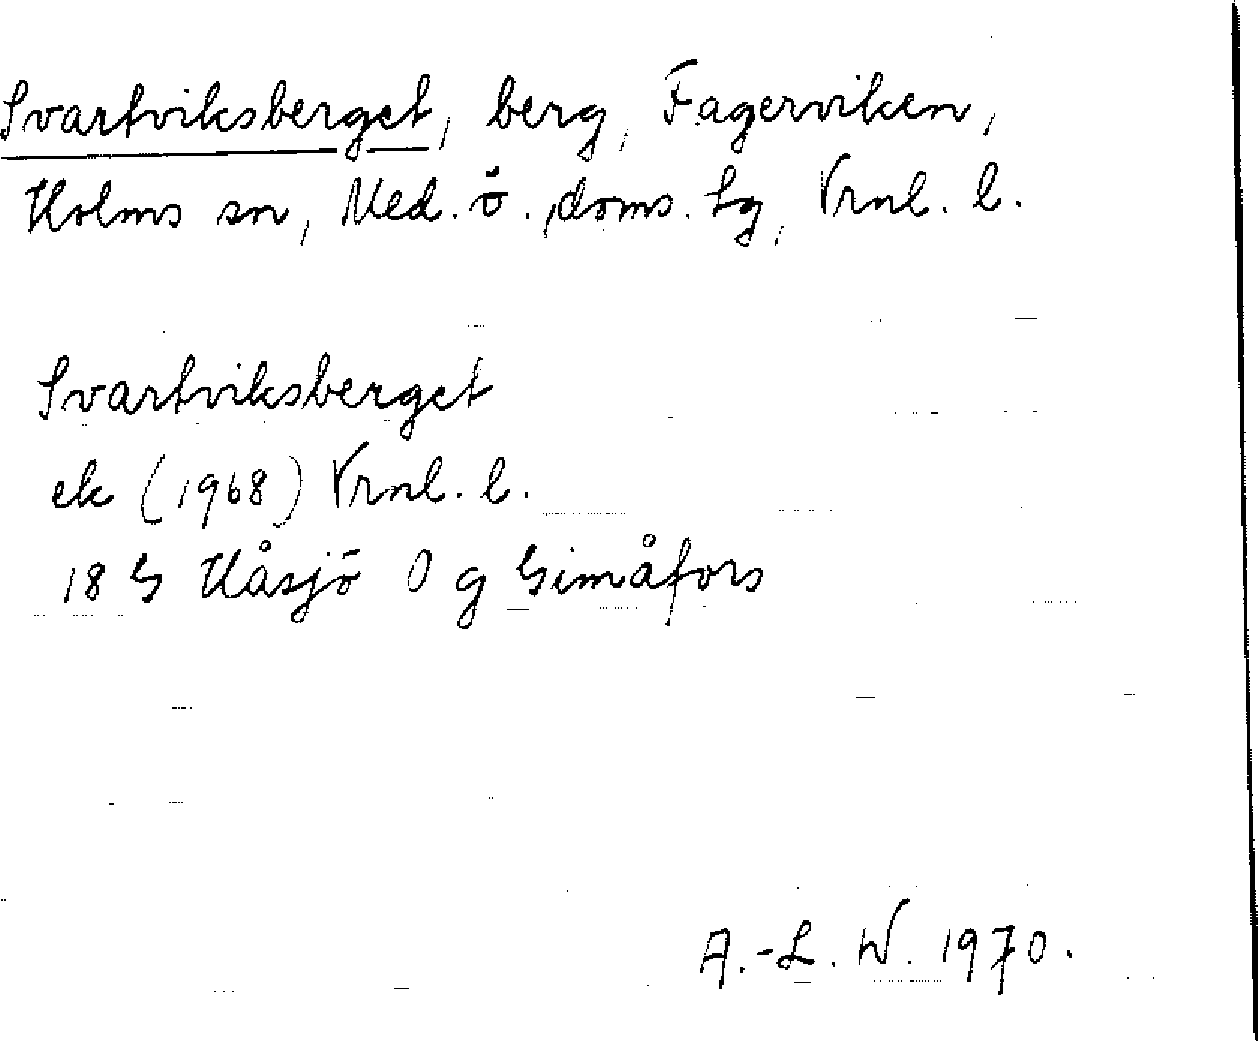 Svartviksberget, berg, Fagerviken,
Holms sn, Med. ö., doms. sg, Vrnl. l.
Svartviksberget
ek (1968) Vrnl. l.
18 G Håsjö O g Gimåfors
A.-L. W. 1970.